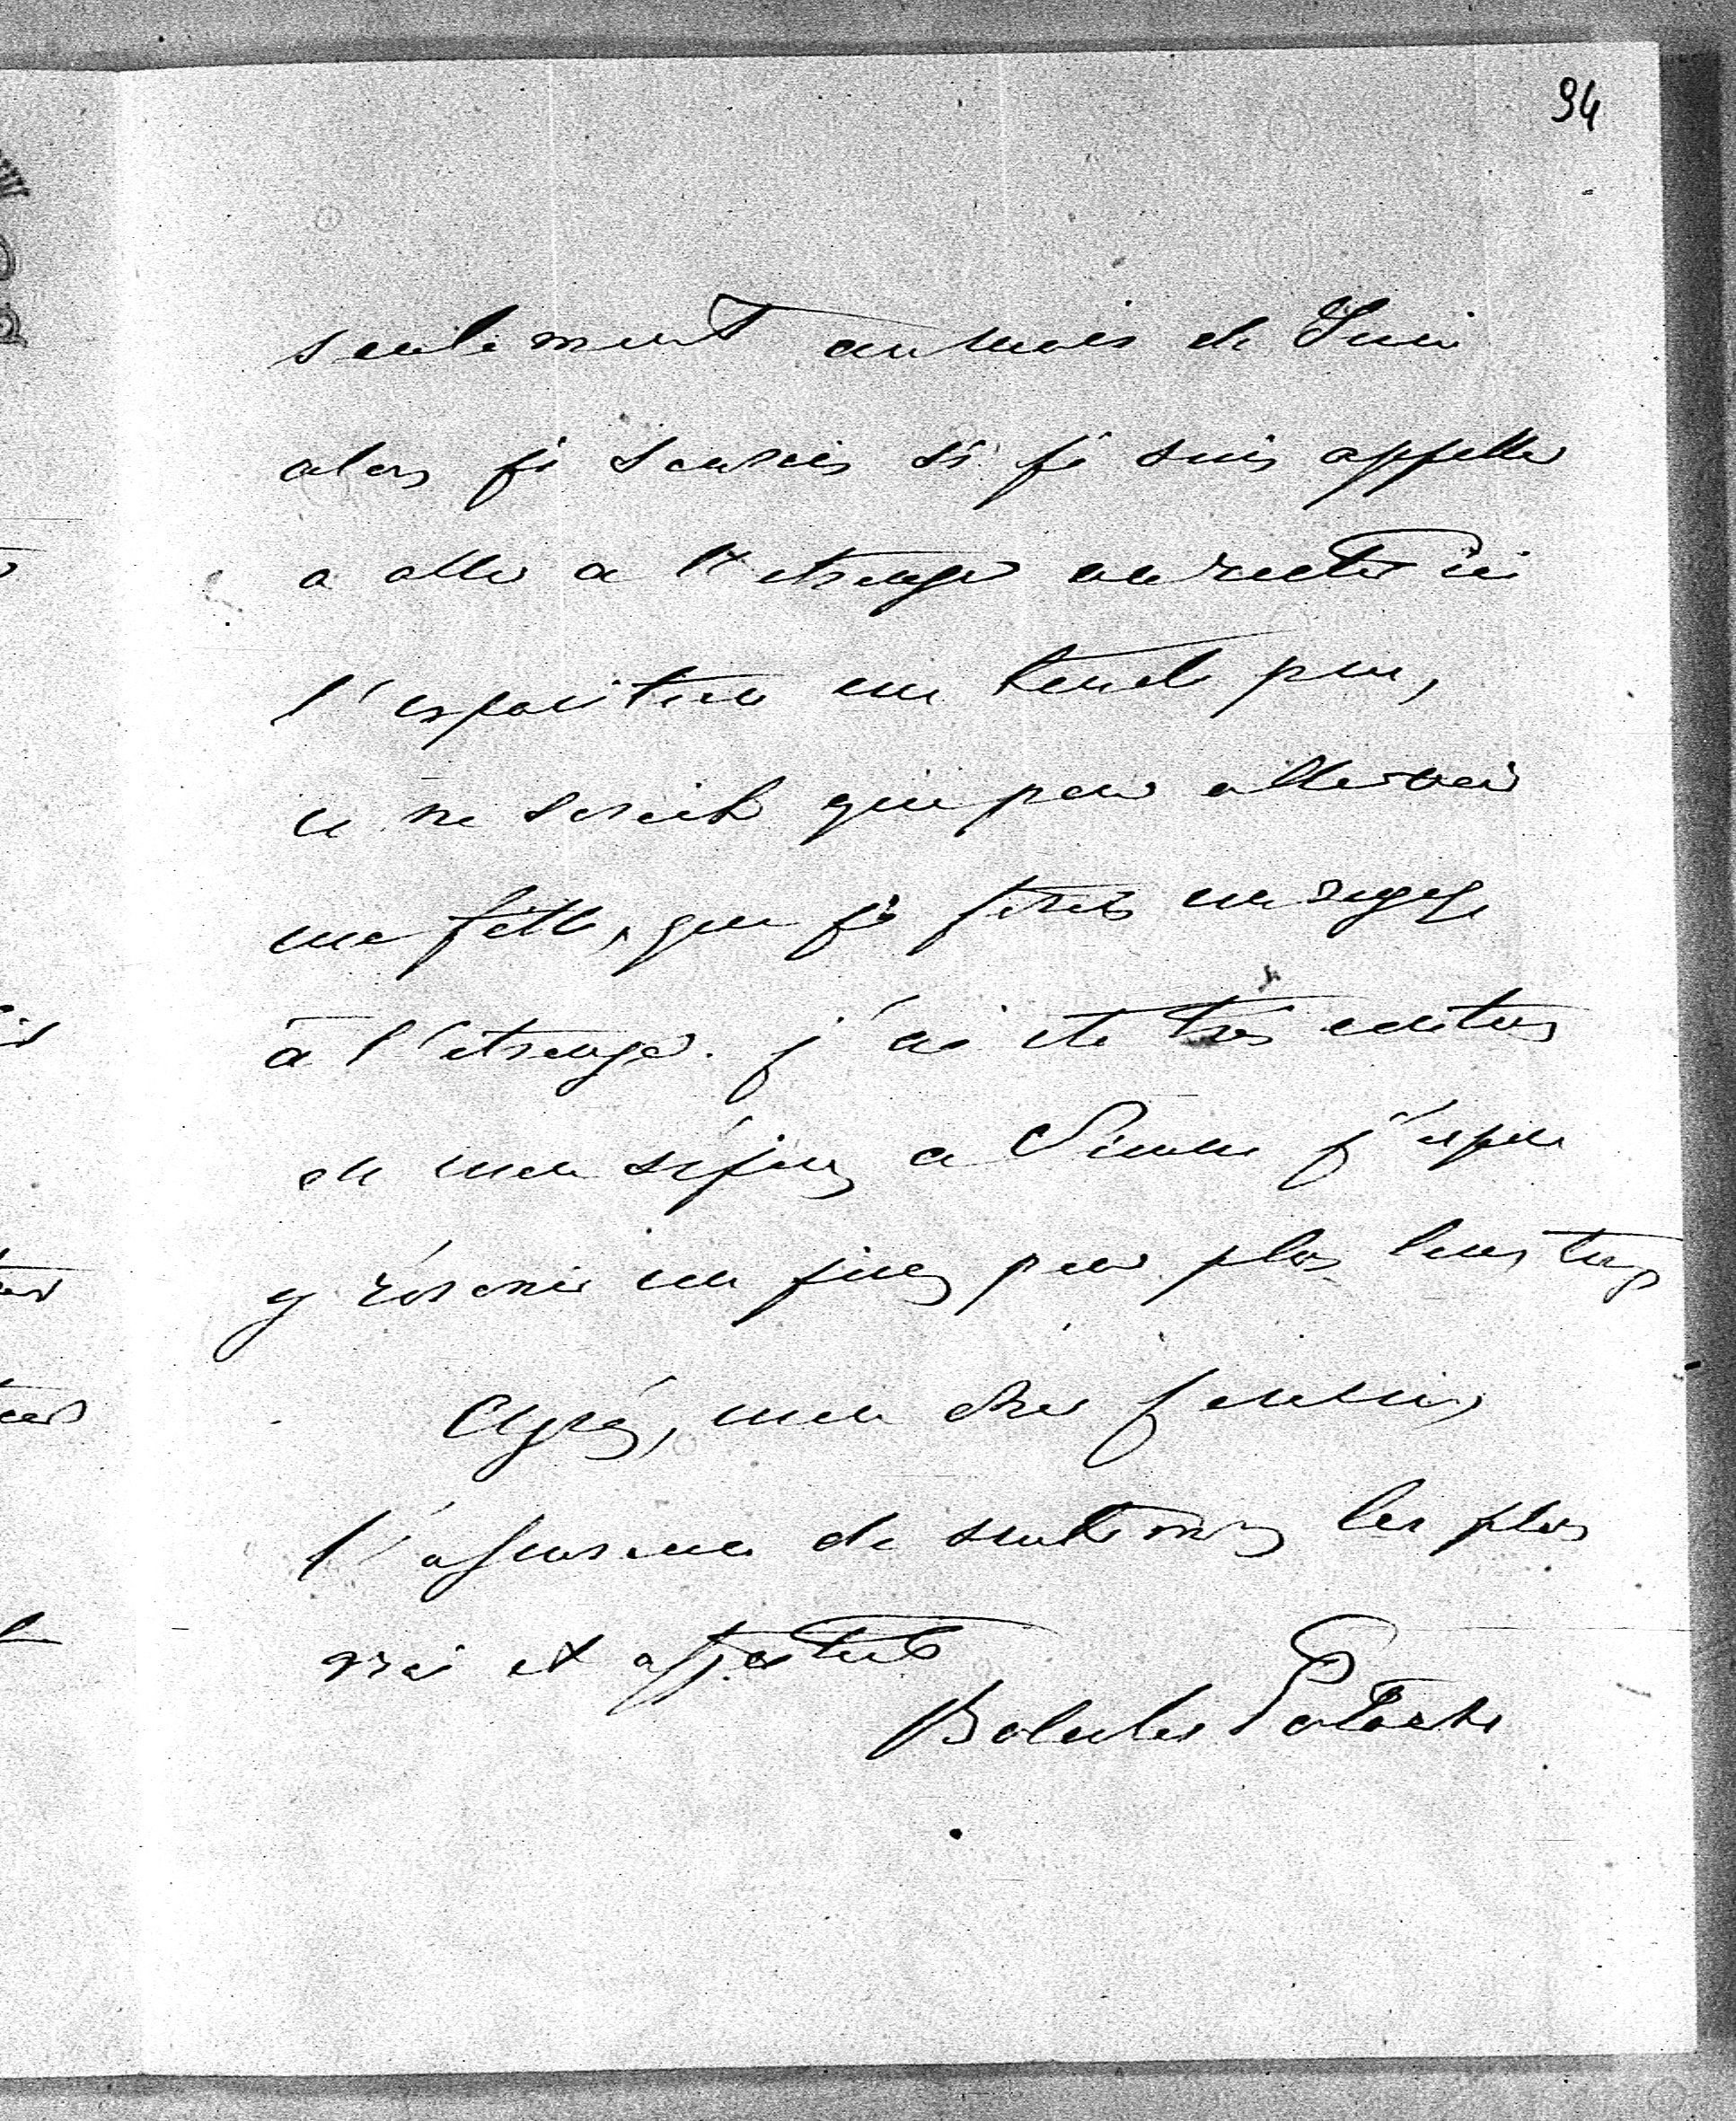 94
seulement au mois de Juin
alors je saurais si je suis appeller
a aller a l'etranger ou rester ici
l'exposition me tente peu,
ce ne serait que pour aller voir
ma fille, que je ferais un voyage
à l'etranger. j'ai ete très content
de mon séjour a Vienne j'espere
y revenir un jour pour plus longtemps
Agréez, mon cher
l'assurance de sentiments les plus
vrai et affectueux
Potocki